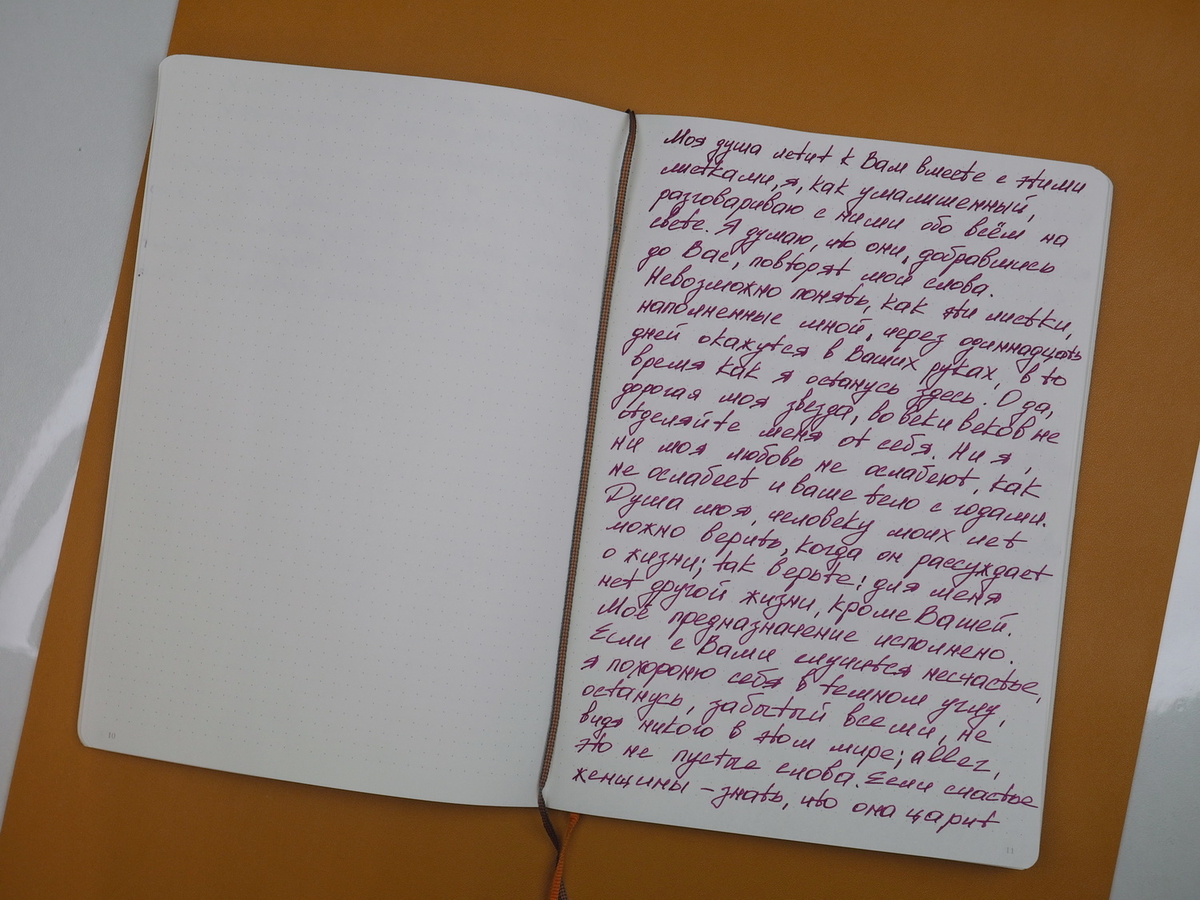 Моя душа летит к Вам вместе с этими
листками, я, как умалишенный,
разговариваю с ними обо всём на
свете. Я думаю, что они, добравшись
до Вас, повторят мои слова.
Невозможно понять, как эти листки,
наполненные мной, через одиннадцать
дней окажутся в Ваших руках, в то
время как я останусь здесь. О да,
дорогая моя звезда, во веки веков не
отделяйте меня от себя. Ни я,
ни моя любовь не ослабеют, как
не ослабеет и ваше тело с годами.
Душа моя, человеку моих лет
можно верить, когда он рассуждает
о жизни; так верьте: для меня
нет другой жизни, кроме Вашей.
Моё предназначение исполнено.
Если с Вами случится несчастье,
я похороню себя в темном углу,
останусь, забытый всеми, не
видя никого в этом мире; allez,
это не пустые слова. Если счастье
женщины – знать, что она царит
10
11